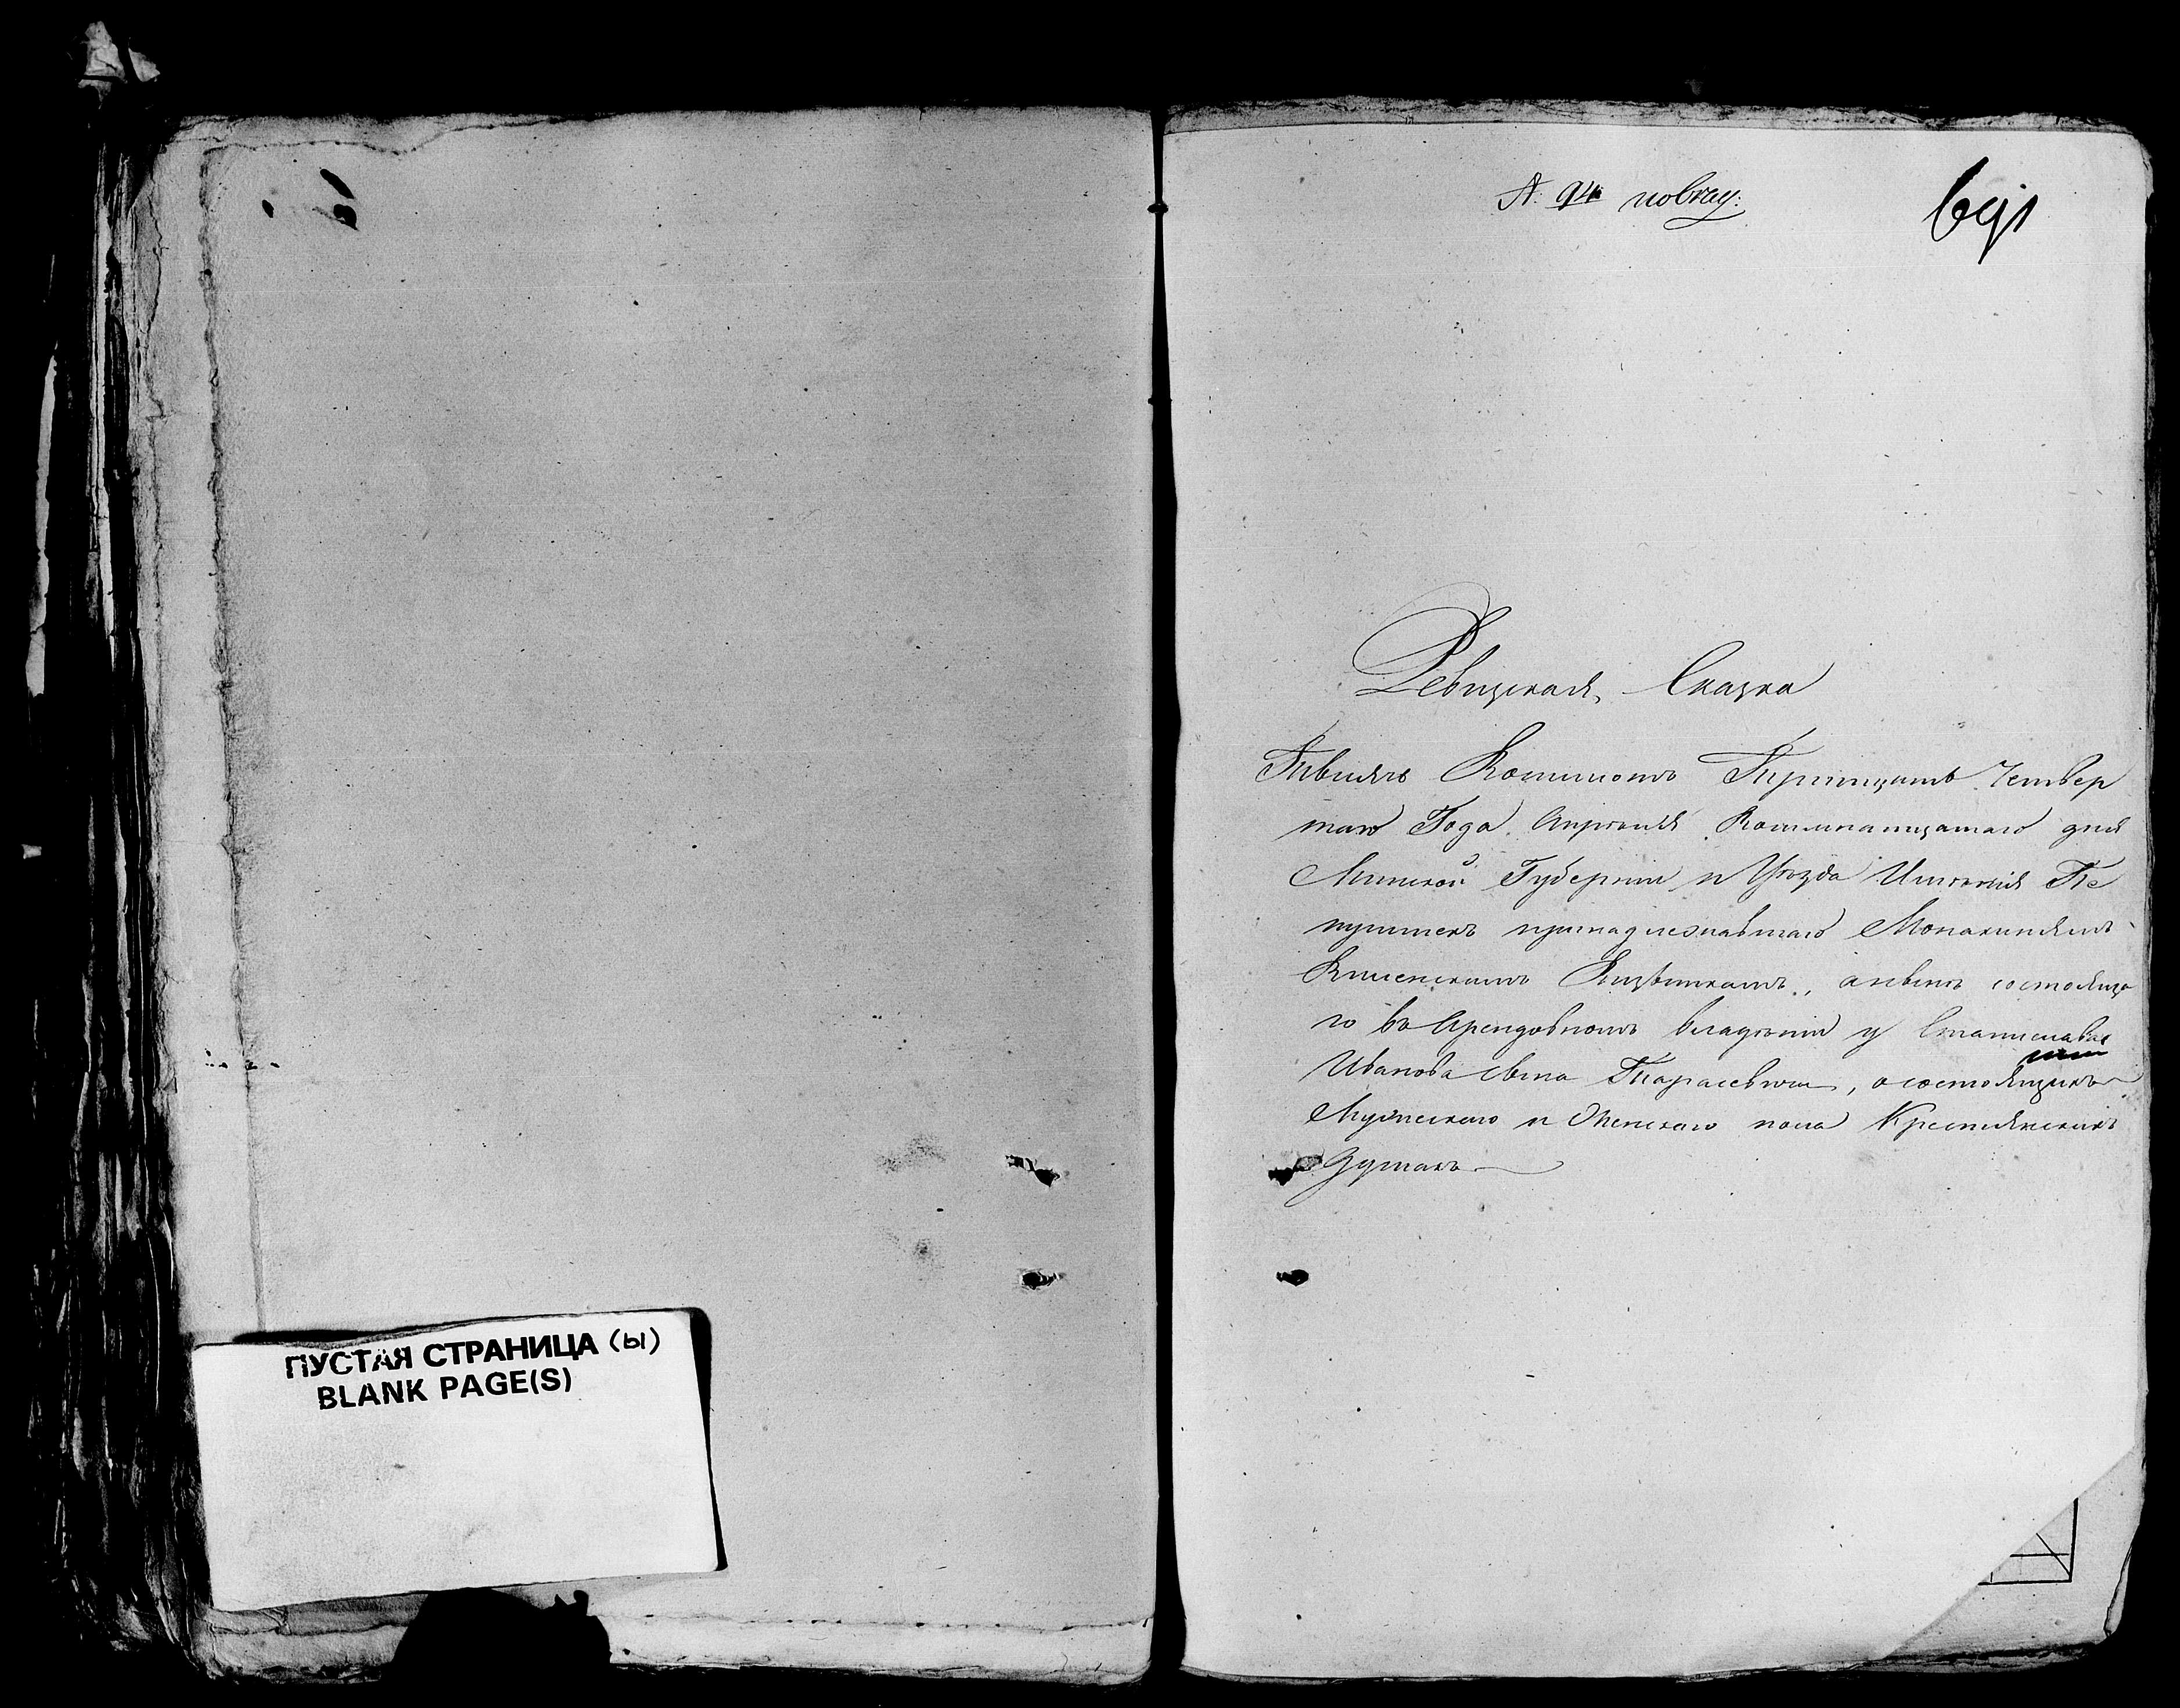 ПУСТАЯ СТРАНИЦА (ы)
BLANK PAGE(S)
№ 94
Ревизская Сказка
Тысяча Восемьсотъ Тритцать Четвер
таго Года Апреля Восемнатцатаго дня
Минской Губерніи и Уѣзда Имѣнія Пе
принадлежавшаго Монахинямъ
Виленскимъ Визыткамъ, а нынѣ состояща
го въ Арендовномъ владѣніи у Станислава
Иванова сына Тарасевича, о состоящихъ
Мужескаго и Женскаго пола Крестьянскихъ
душахъ